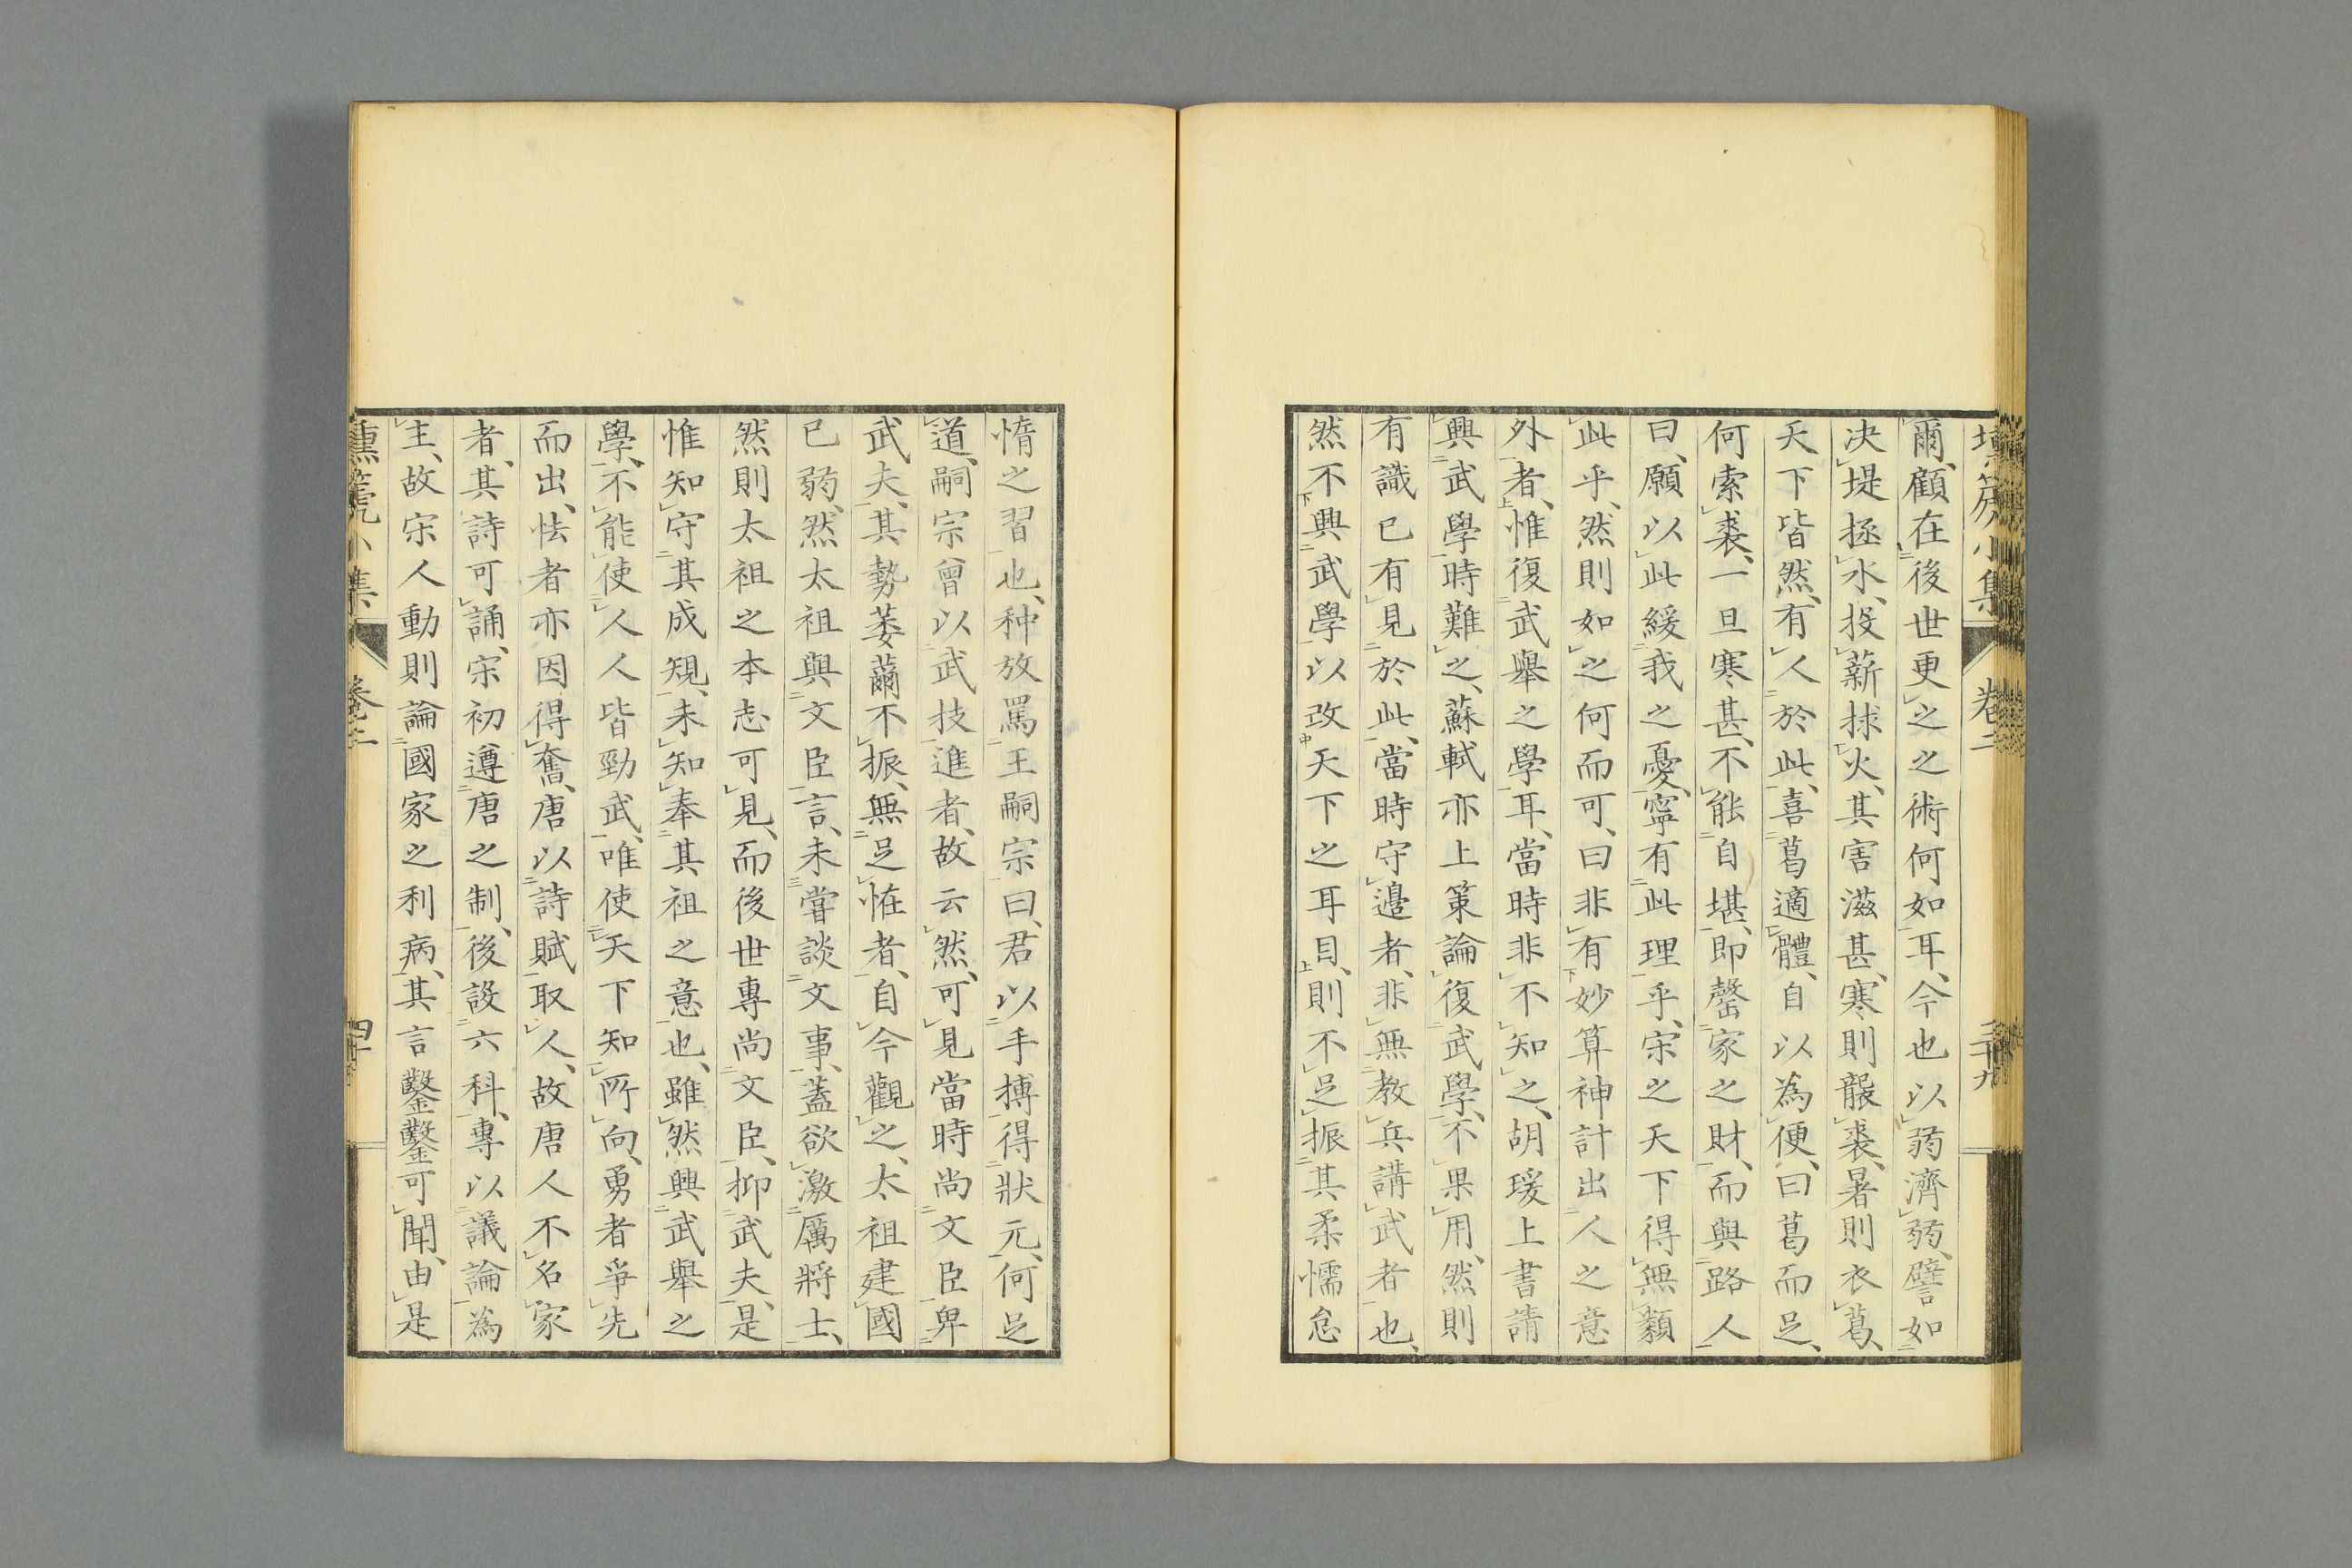 壎篪小集 卷二 三十九
爾、顧在後世更之之術何如耳、今也以弱濟弱、譬如
決堤拯水、投薪捄火、其害滋甚、寒則襲裘、暑則衣葛、
天下皆然、有人於此、喜葛適體、自以為便、曰葛而足、
何索裘、一旦寒甚、不能自堪、即罄家之財、而與路人
曰、願以此緩我之憂、寧有此理乎、宋之天下得無纇
此乎、然則如之何而可、曰非有妙算神計出人之意
外者、惟復武舉之學耳、當時非不知之、胡瑗上書請
興武學、時難之、蘇軾亦上策論復武學、不果用、然則
有識已有見於此、當時守邊者、非無教兵講武者也、
然不興武學以改天下之耳目、則不足振其柔懦怠
惰之習也、种放罵王嗣宗曰、君以手搏得狀元、何足
道、嗣宗曾以武技進者、故云然、可見當時尚文臣卑
武夫、其勢萎薾不振、無足恠者、自今觀之、太祖建國
已弱、然太祖與文臣言、未嘗談文事、蓋欲激厲將士、
然則太祖之本志可見、而後世專尚文臣、抑武夫、是
惟知守其成規、未知奉其祖之意也、雖然興武舉之
學、不能使人人皆勁武、唯使天下知所向、勇者爭先
而出、怯者亦因得奮、唐以詩賦取人、故唐人不名家
者、其詩可誦、宋初遵唐之制、後設六科、專以議論為
主、故宋人動則論國家之利病、其言鑿鑿可聞、由是
壎篪小集 卷二 四十